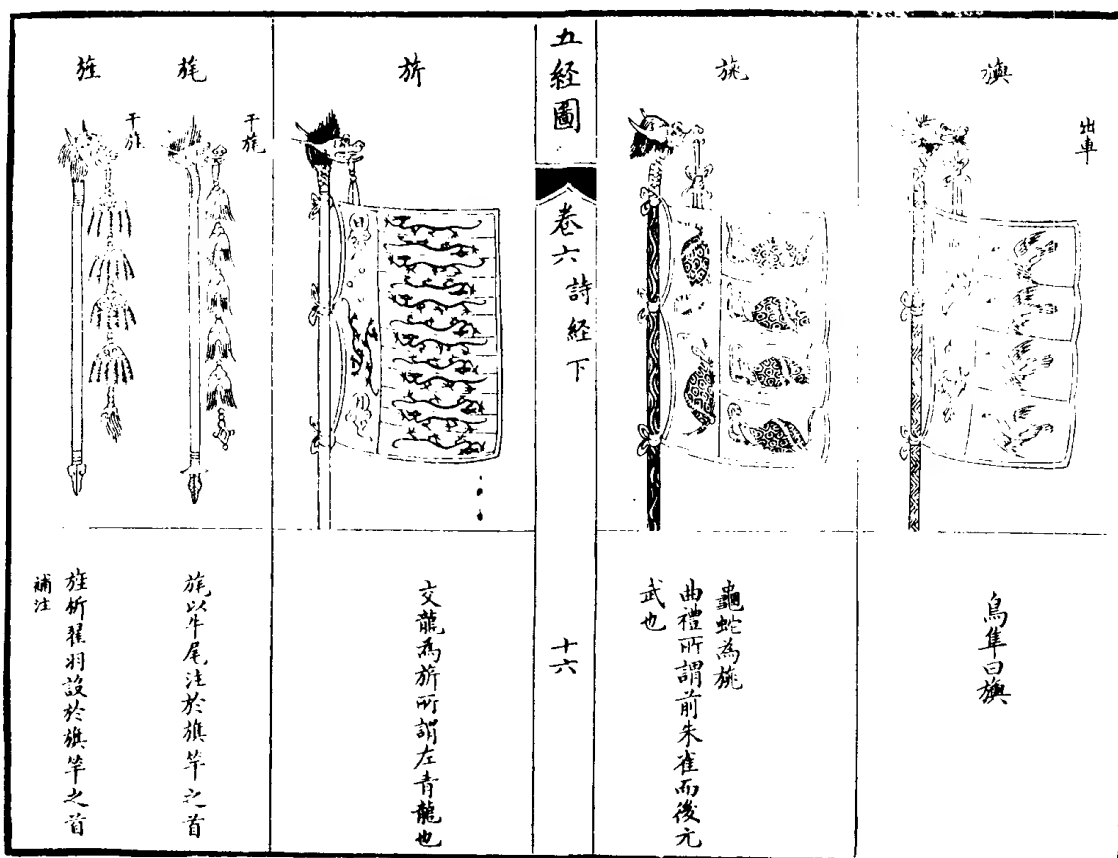 旟
出車
鳥隼曰旟
旐
龜蛇為旐
曲禮所謂前朱雀而後元
武也
五経圖
卷六 詩経下
十六
旂
交龍為旂所謂左青龍也
旄
干旄
旄以牛尾注於旗竿之首
旌
干旄
旌析翟羽設於旗竿之首
補注